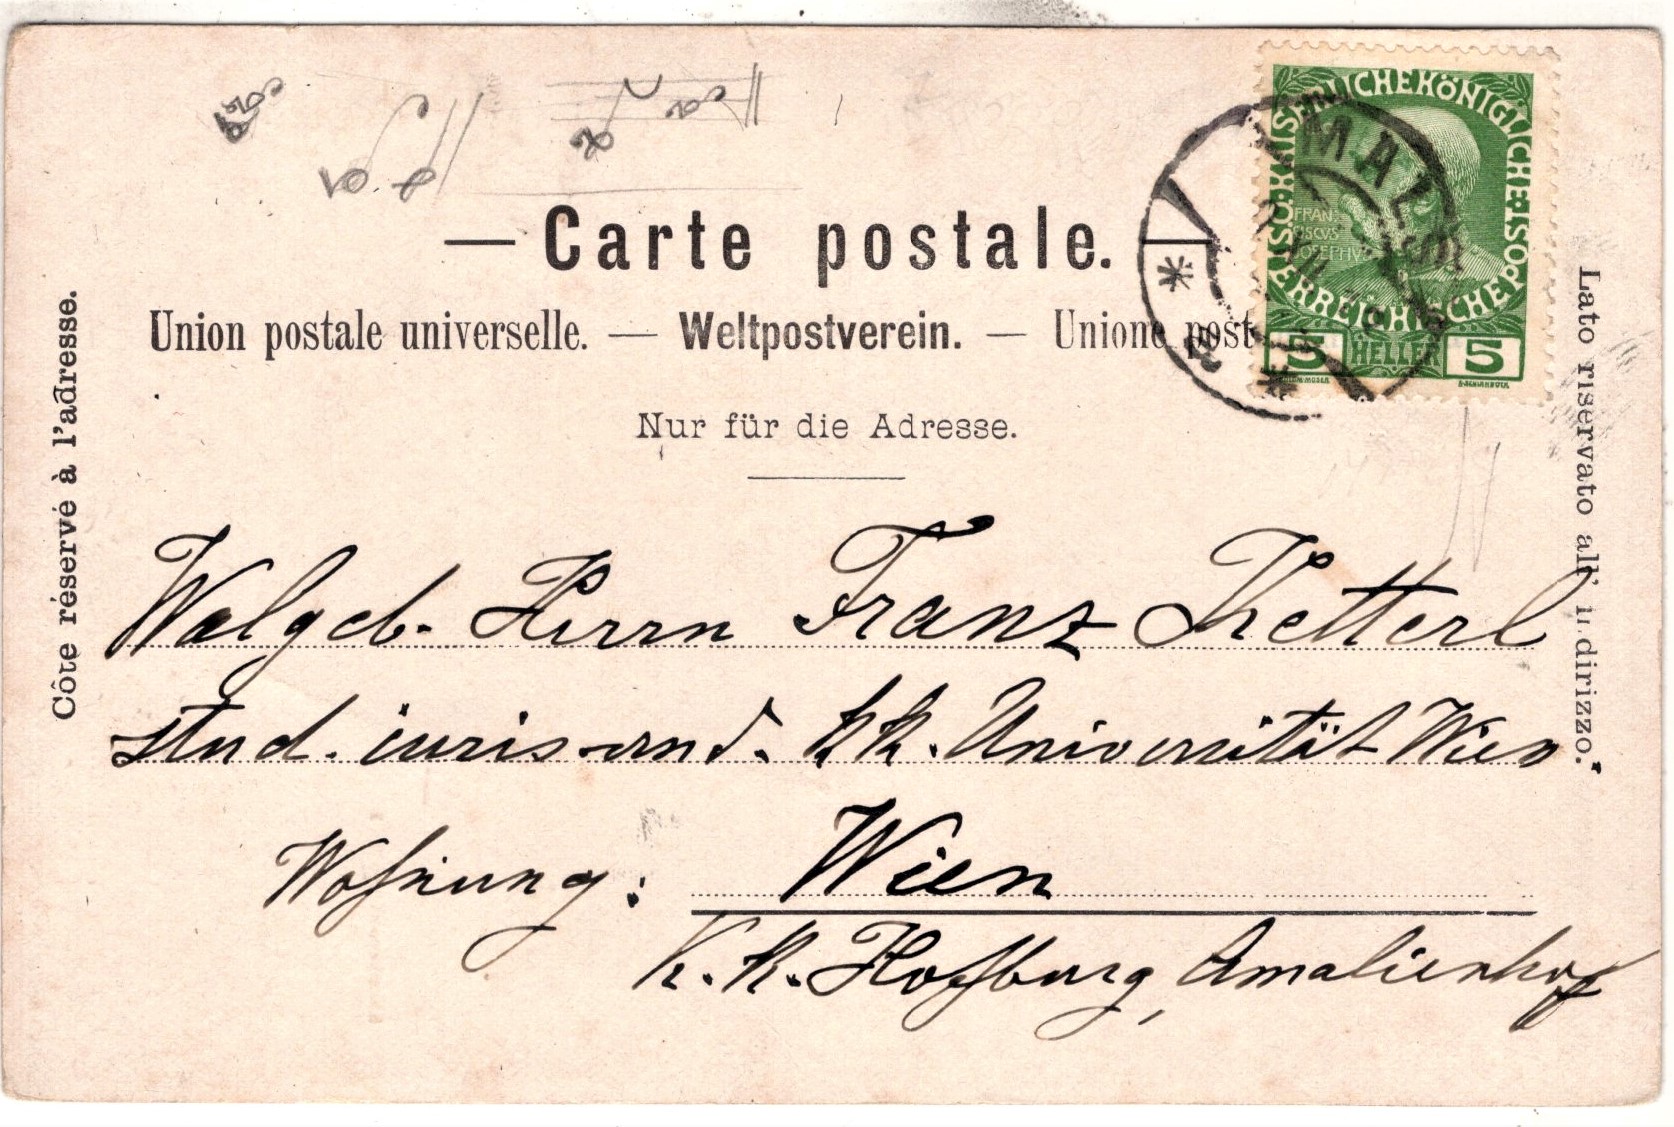 Carte postale.
Union postale universelle. — Weltpostverein. — Unione post
Nur für die Adresse.
Côte réservé à l'adresse.
Lato riservato all' indirizzo.
KAISERLICHEKÖNIGLICHE ÖSTERREICHISCHE POST
FRAN
CISCVS
IOSEPHVS
5 HELLER 5
MALS
Walgeb. Herrn Franz Ketterl
stud. iuris and. k.k. Universität Wien.
Wohnung: Wien
k.k. Hofburg, Amalienhof